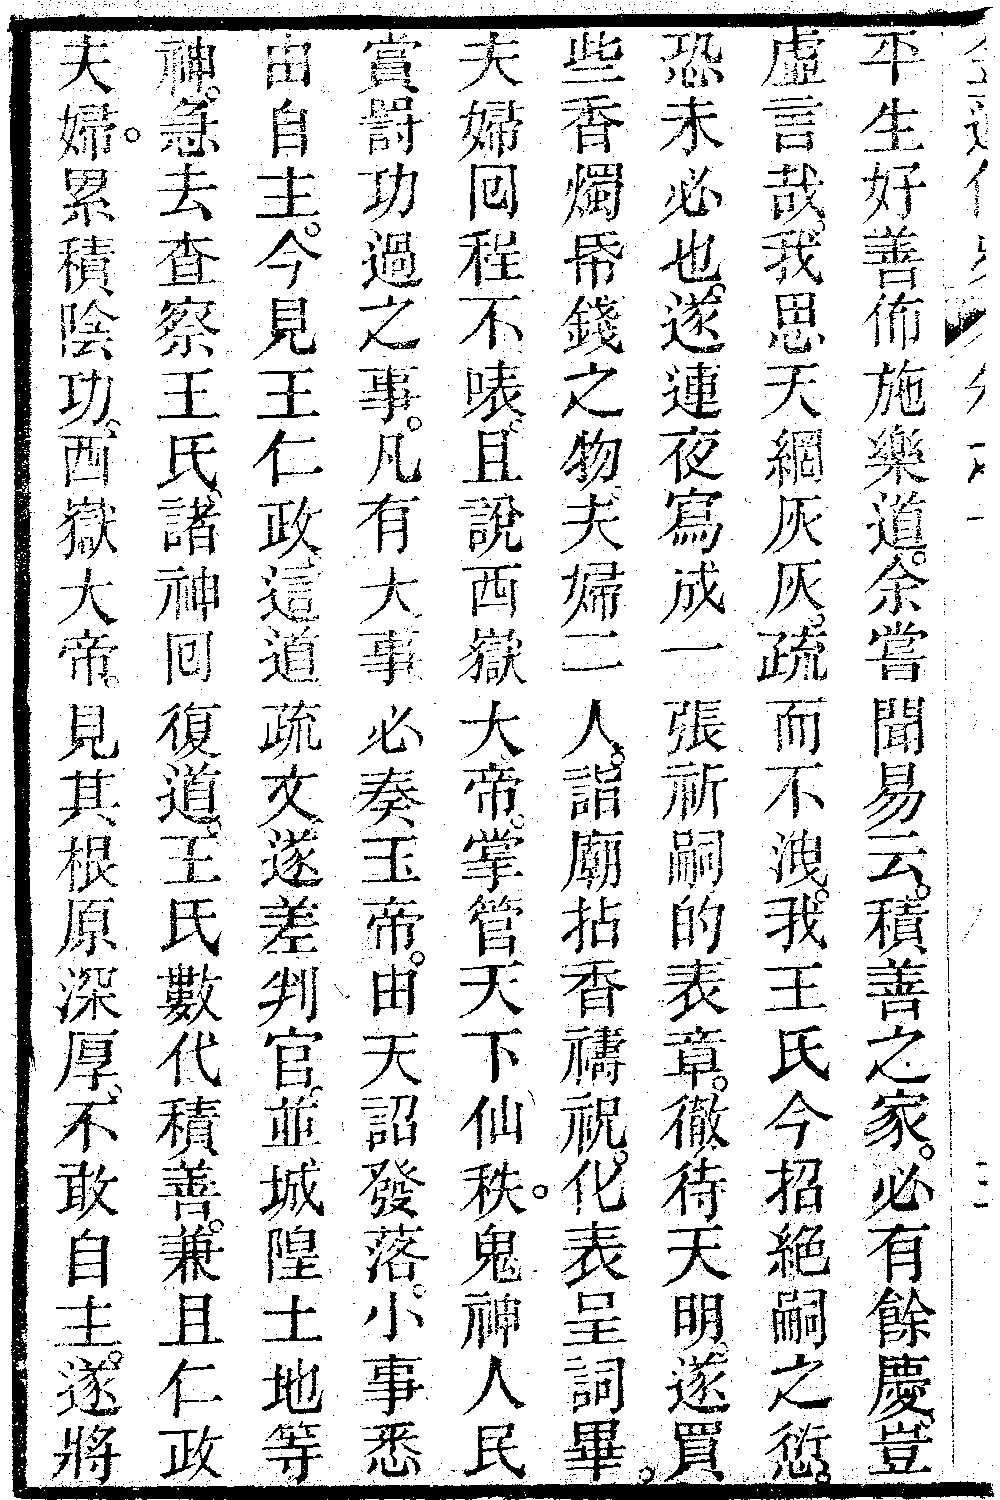 平生好善佈施樂道。余嘗聞易云。積善之家。必有餘慶。豈
虛言哉。我思天網灰灰。疏而不洩。我王氏今招絕嗣之愆。
恐未必也。遂連夜寫成一張祈嗣的表章。徹待天明。遂買
些香燭帋錢之物。夫婦二人。詣廟拈香禱祝。化表呈詞畢。
夫婦回程不表。且說西嶽大帝。掌管天下仙秩。鬼神人民
賞罸功過之事。凡有大事必奏玉帝。由天詔發落。小事悉
由自主。今見王仁政。這道疏文。遂差判官。並城隍土地等
神。急去查察王氏。諸神回復道。王氏數代積善。兼且仁政
夫婦。累積陰功。西嶽大帝。見其根原深厚。不敢自主。遂將